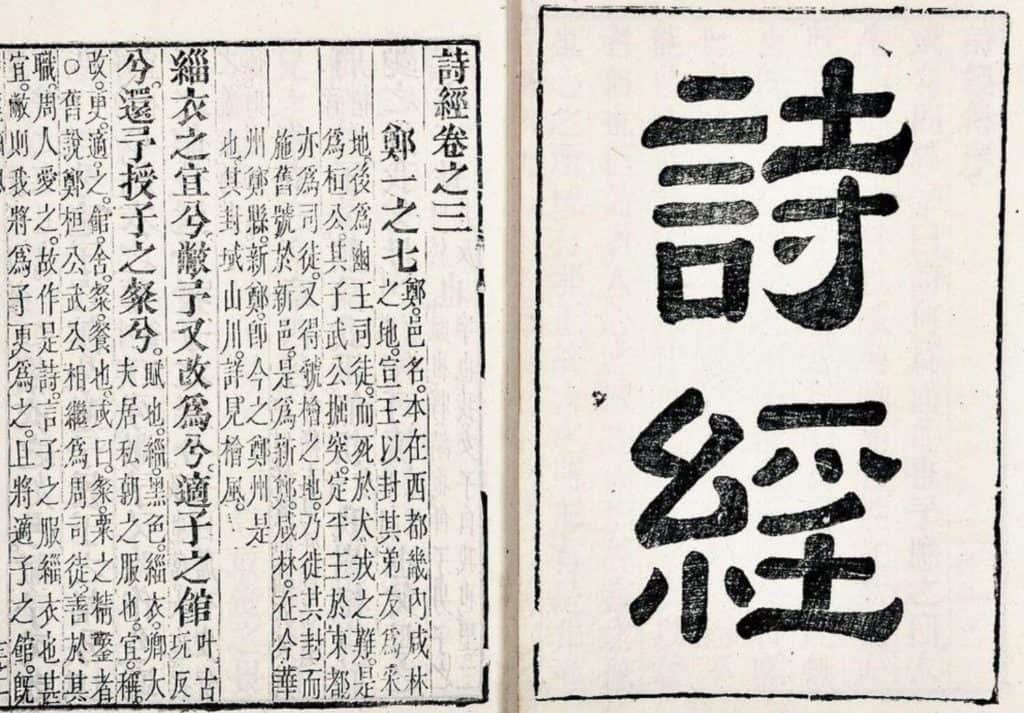 詩經
詩經卷之三
鄭一之七
鄭。邑名。本在西都畿內咸林
之地。宣王以封其弟友爲采
地。後爲幽王司徒。而死於犬戎之難。是
爲桓公。其子武公掘突。定平王於東都。
亦爲司徒。又得虢檜之地。乃徙其封。而
施舊號於新邑。是爲新鄭。咸林。在今華
州鄭縣。新鄭。即今之鄭州。是
也。其封域山川。詳見檜風。
緇衣之宜兮。敝予又改爲兮。適子之館
叶古
玩反
兮。還予授子之粲兮。
賦也。緇。黑色。緇衣。卿大
夫居私朝之服也。宜。稱
改。更。適。之。館。舍。粲。餐也。或曰。粲。粟之精鑿者
○舊說鄭桓公武公相繼。爲周司徒。善於其
職。周人愛之。故作是詩。言子之服緇衣也甚
宜。敝則我將爲子更爲之。且將適子之館。既